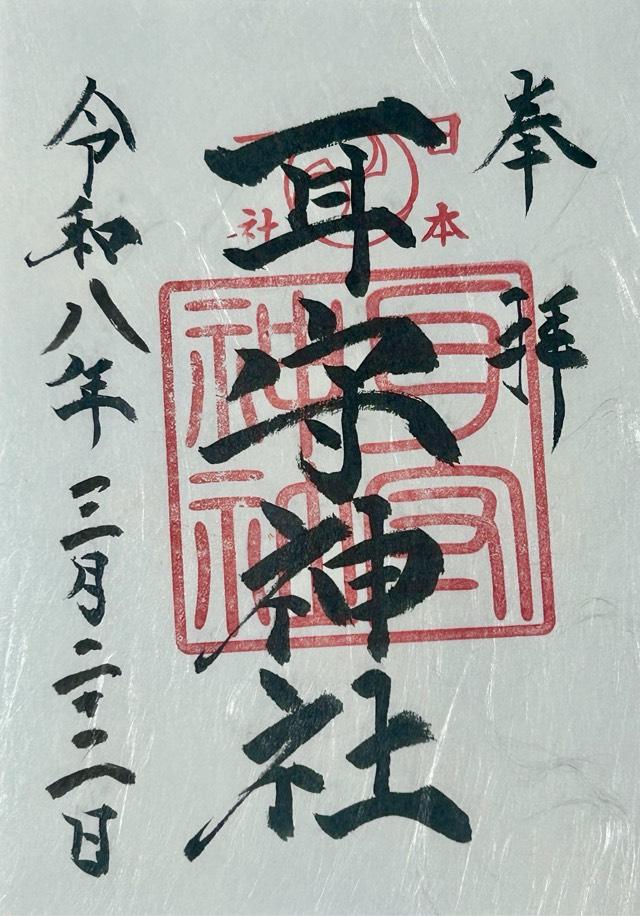 奉拝
日本一社
耳守神社
耳守神社
令和八年三月二十二日